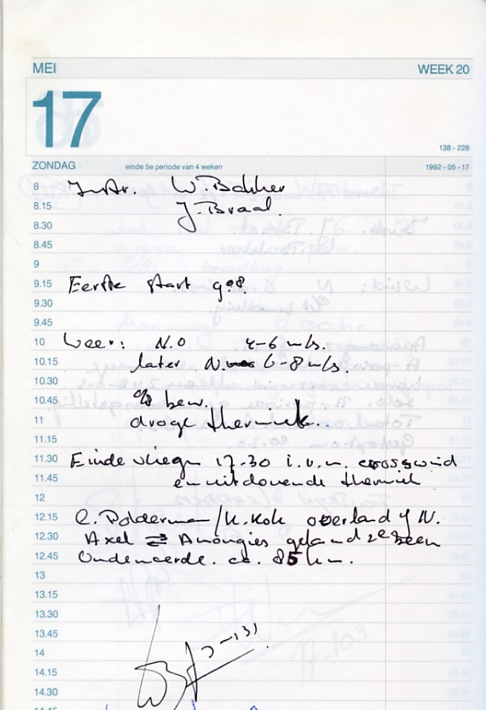 MEI WEEK 20
17
138 - 228
ZONDAG einde 5e periode van 4 weken 1992 - 05 - 17
8 Instr. W. Bakker
8.15 J. Braal.
8.30
8.45
9
9.15 Eerste start
9.30
9.45
10 Weer: N.O 4-6 m/s.
10.15 later N. 6-8 m/s.
10.30
10.45 0/8 bew.
11 droge thermiek.
11.15
11.30 Einde vliegen 17-30 i.v.m. crosswind
11.45 en uitdovende thermiek
12
12.15 C. Polderman/K. Kok overland
12.30 Axel
12.45 ca. 85 km.
13
13.15
13.30
13.45
14
14.15
14.30
14.45